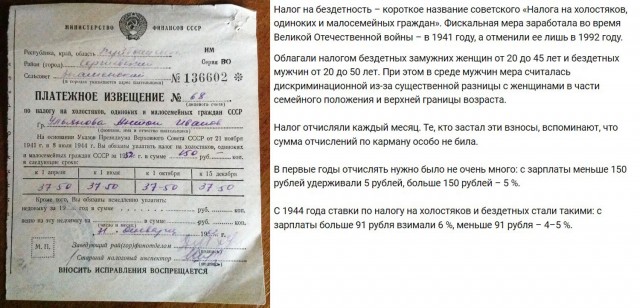 МИНИСТЕРСТВО ФИНАНСОВ СССР
Республика, край, область
НМ
Район (город)
Серия ВО
Сельсовет
№ 136602
ПЛАТЕЖНОЕ ИЗВЕЩЕНИЕ № 68
(лицевого счета)
по налогу на холостяков, одиноких и малосемейных граждан СССР
Гр.
На основании Указов Президиума Верховного Совета СССР от 21 ноября
1941 г. и 8 июля 1944 г. Вы обязаны уплатить налог на холостяков, одиноких
и малосемейных граждан СССР за 19 г. в сумме 150 руб.
в следующие сроки:
к 1 апреля
к 1 июля
к 1 октября
к 15 декабря
37-50
37-50
37-50
37-50
Кроме того, Вы обязаны немедленно уплатить
недоимку за 19 г. в сумме руб. коп.
в сумме руб. коп.
М. П.
Заведующий рай(гор)финотделом
Старший налоговый инспектор
ВНОСИТЬ ИСПРАВЛЕНИЯ ВОСПРЕЩАЕТСЯ
Налог на бездетность – короткое название советского «Налога на холостяков,
одиноких и малосемейных граждан». Фискальная мера заработала во время
Великой Отечественной войны – в 1941 году, а отменили ее лишь в 1992 году.
Облагали налогом бездетных замужних женщин от 20 до 45 лет и бездетных
мужчин от 20 до 50 лет. При этом в среде мужчин мера считалась
дискриминационной из-за существенной разницы с женщинами в части
семейного положения и верхней границы возраста.
Налог отчисляли каждый месяц. Те, кто застал эти взносы, вспоминают, что
сумма отчислений по карману особо не била.
В первые годы отчислять нужно было не очень много: с зарплаты меньше 150
рублей удерживали 5 рублей, больше 150 рублей – 5 %.
С 1944 года ставки по налогу на холостяков и бездетных стали такими: с
зарплаты больше 91 рубля взимали 6 %, меньше 91 рубля – 4–5 %.